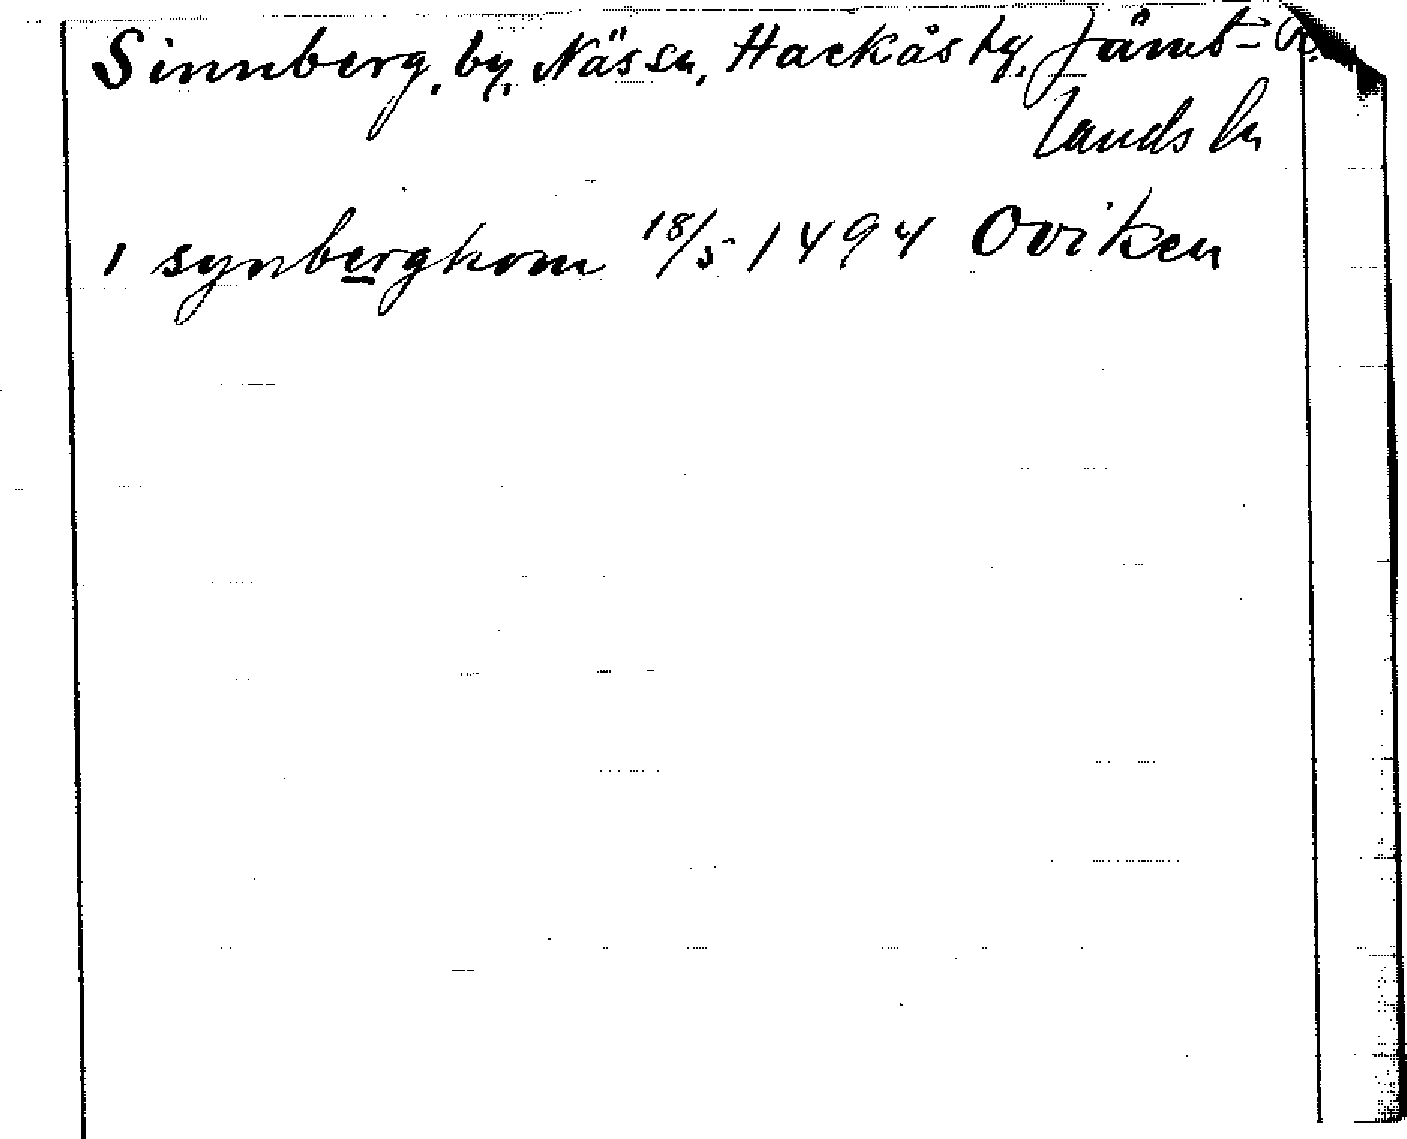 Sinnberg, by, Nässn, Hackås tg, Jämt-
lands ln
1 synberghom 18/5 1494 Oviken